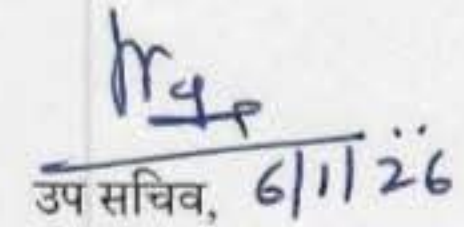 उप सचिव, 6/1/26